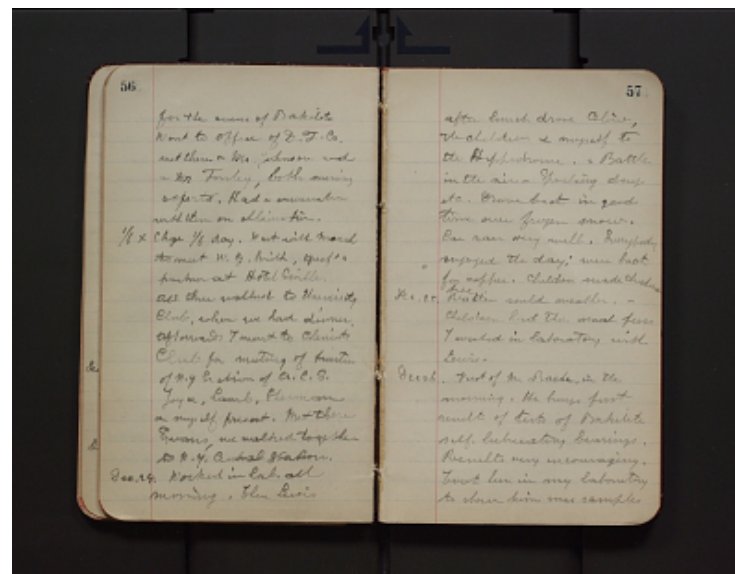 56
for the evening of Bakelite
Went to Office of D. F. Co.
met there a Mr. Johnson and
a Mr Tunley, both moving
experts. Had a conversation
with them on
1/8 x Chge 1/8 day. Went with
to meet W. G. Smith,
partner at Hotel
All three walked to University
Club, where we had dinner,
afterwards I went to Chemists
Club for meeting of trustees
of N.Y Section of A. C. S.
Joya, Lamb, Sherman
a myself present. Met there
we walked together
to N.Y. Central Station.
Dec. 24. Worked in lab. all
morning.
57
after lunch drove Céline,
the children & myself to
the Hippodrome. a Battle
in the air a Sporting days
etc. Drove back in good
time over frozen snow.
Car ran very well. Everybody
enjoyed the day; were back
for supper. Children made
tree.
Dec. 25. Rather could weather. -
Children had the usual
I worked in laboratory with
Lewis.
Dec 26. Visit of Mr in the
morning. He brings first
results of tests of Bakelite
self lubricating bearings.
Results very encouraging.
Took him in my laboratory
to show him some samples